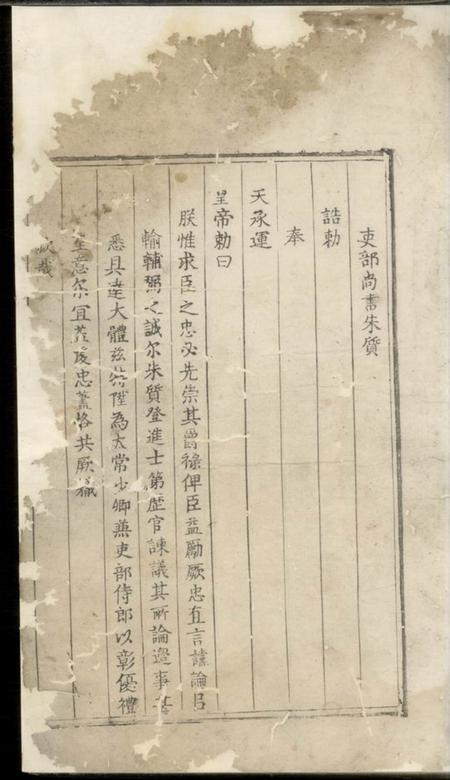 吏部尚書朱質
誥勅
奉
天承運
皇帝勅曰
朕惟求臣之忠必先崇其爵祿俾臣益勵厥忠直言讜論日
輸輔弼之誠尔朱質登進士第歷官諫議其所論邉事甚
悉具達大體兹特陞為太常少卿兼吏部侍郎以彰優禮
至意尔宜益忠藎恪共厥職
哉